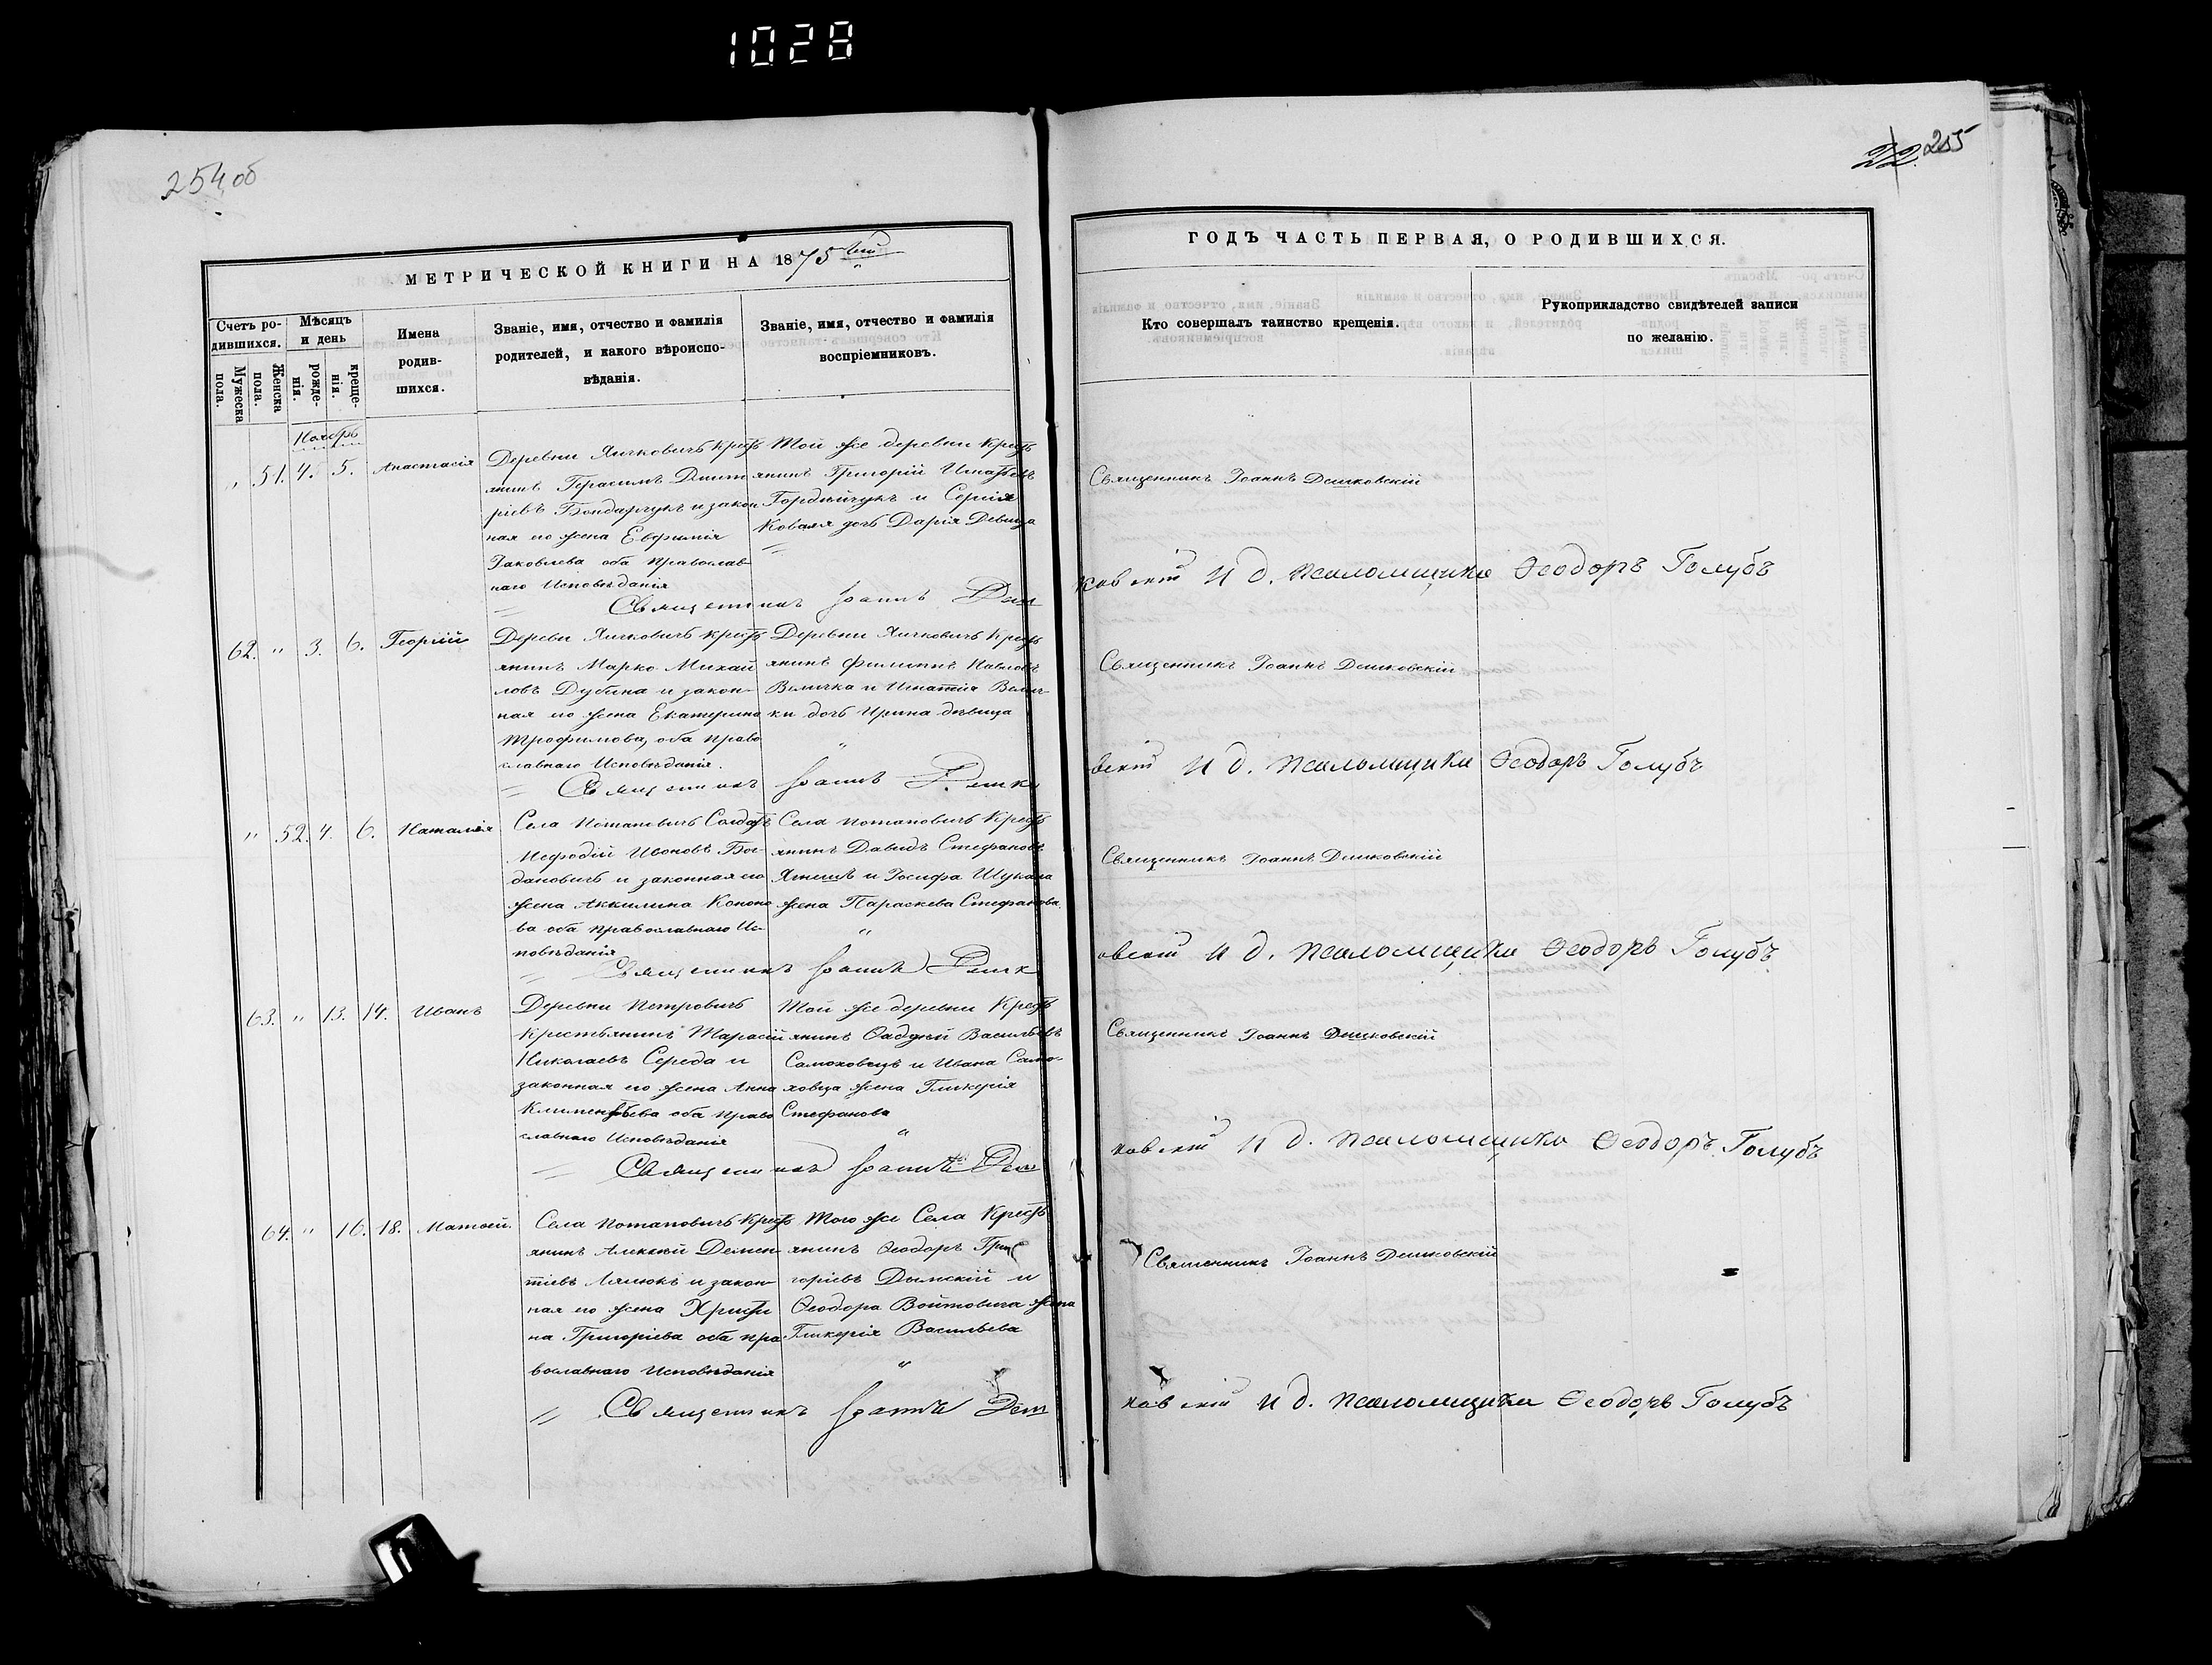 1028
254 об
22. 255
МЕТРИЧЕСКОЙ КНИГИ НА 1875
Счетъ ро-
дившихся.
Мужеска
пола.
Женска
пола.
Мѣсяцъ
и день
рожде-
нія.
креще-
нія.
Имена
родив-
шихся.
Званіе, имя, отчество и фамилія
родителей, и какого вѣроиспо-
вѣданія.
Званіе, имя, отчество и фамилія
воспріемниковъ.
ГОДЪ ЧАСТЬ ПЕРВАЯ, О РОДИВШИХСЯ.
Кто совершалъ таинство крещенія.
Рукоприкладство свидѣтелей записи
по желанію.
Ноябрь
" 51. 4. 5. Анастасія
Деревни Яичковичъ Крестъ
янинъ Герасимъ Димит
ріевъ Бондарчукъ и закон
ная его жена Евфимія
Іаковлева оба православ
наго Исповѣданія
Той же деревни Крестъ
янинъ Григорій Игнатьевъ
Гордѣйчукъ и Сергія
Коваля дочь Дарія Девица
Священникъ Іоаннъ Дешковскій
Священникъ Іоаннъ Деш
ковскій И д. псаломщика Ѳеодоръ Голубъ
62. " 3. 6. Георгій
Деревни Яичковичъ крестъ
янинъ Марко Михай
ловъ Дубина и закон-
ная его жена Екатерина
Трофимова, оба право
славнаго Исповѣданія.
Деревни Яичковичъ Крестъ
янинъ Филиппъ Павловъ
Величка и Игнатія Велич
ки дочь Ирина дѣвица
Священникъ Іоаннъ Дешковскій
Священникъ Іоаннъ Дешко
вскій И д. псаломщика Ѳеодоръ Голубъ
" 52. 4. 6. Наталія
Села Потаповичъ Солдатъ
Мефодій Ивоновъ Бог-
дановичъ и законная его
жена Акилина Конона
ва оба православнаго Ис-
повѣданія
Села Потаповичъ Крестъ
янинъ Давидъ Стефановъ
Ягнешъ и Іосифа Шукала
жена Параскева Стефанова.
Священникъ Іоаннъ Дешковскій
Священникъ Іоаннъ Дешк
овскій И д. псаломщика Ѳеодоръ Голубъ
63. " 13. 14. Иванъ
Деревни Петровичъ
Крестьянинъ Тарасій
Николаевъ Середа и
законная его жена Анна
Климентьева оба право
славнаго Исповѣданія
Той же деревни Крестъ
янинъ Ѳаддей Васильевъ
Самоховецъ и Ивана Само-
ховца жена Гликерія
Стефанова
Священникъ Іоаннъ Дешковскій
Священникъ Іоаннъ Деш
ковскій И д. псаломщика Ѳеодоръ Голубъ
64. " 16. 18. Матѳей.
Села Потаповичъ Крестъ
янинъ Алексѣй Демен
тіевъ Лялюкъ и закон-
ная его жена Христи
на Григоріева оба пра
вославнаго Исповѣданія
Того же Села Крестъ
янинъ Ѳеодоръ Гри
горіевъ Дымскій и
Ѳеодора Войтовича жена
Гликерія Васильева
Священникъ Іоаннъ Дешковскій
Священникъ Іоаннъ Деш
ковскій И д. псаломщика Ѳеодоръ Голубъ